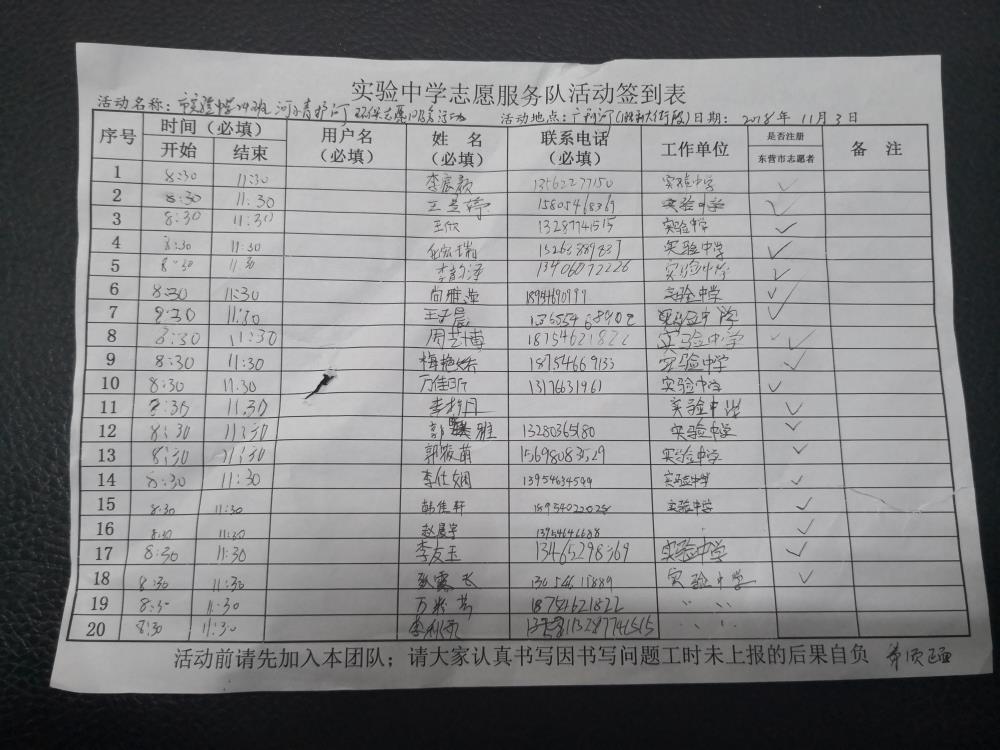 实验中学志愿服务队活动签到表
活动名称：市实验中学 河 护河 环保志愿服务活动 活动地点：广利河 日期：2018年11月3日
序号 时间（必填） 用户名（必填） 姓名（必填） 联系电话（必填） 工作单位 是否注册东营市志愿者 备注
开始 结束
1 8:30 11:30 13562277150 实验中学 ✓
2 8:30 11:30 15805468369 实验中学 ✓
3 8:30 11:30 王欣 13287741515 实验中学 ✓
4 8:30 11:30 实验中学 ✓
5 8:30 11:30 13406072226 实验中学 ✓
6 8:30 11:30 尚雅萱 18954690999 实验中学 ✓
7 8:30 11:30 王子晨 实验中学 ✓
8 8:30 11:30 周艺博 18754621822 实验中学 ✓
9 8:30 11:30 梅艳 18754669133 实验中学 ✓
10 8:30 11:30 万佳 13176631961 实验中学 ✓
11 8:30 11:30 实验中学 ✓
12 8:30 11:30 雅 13280365180 实验中学 ✓
13 8:30 11:30 郭筱萌 15698083529 实验中学 ✓
14 8:30 11:30 李仕娴 13954634544 实验中学 ✓
15 8:30 11:30 韩佳轩 18954022028 实验中学 ✓
16 8:30 11:30 赵晨宇 13954646688 ✓
17 8:30 11:30 李友玉 13465298769 实验中学 ✓
18 8:30 11:30 实验中学 ✓
19 8:30 11:30 万 18754621822
20 8:30 11:30 13287741515
活动前请先加入本团队；请大家认真书写因书写问题工时未上报的后果自负 第1页正面